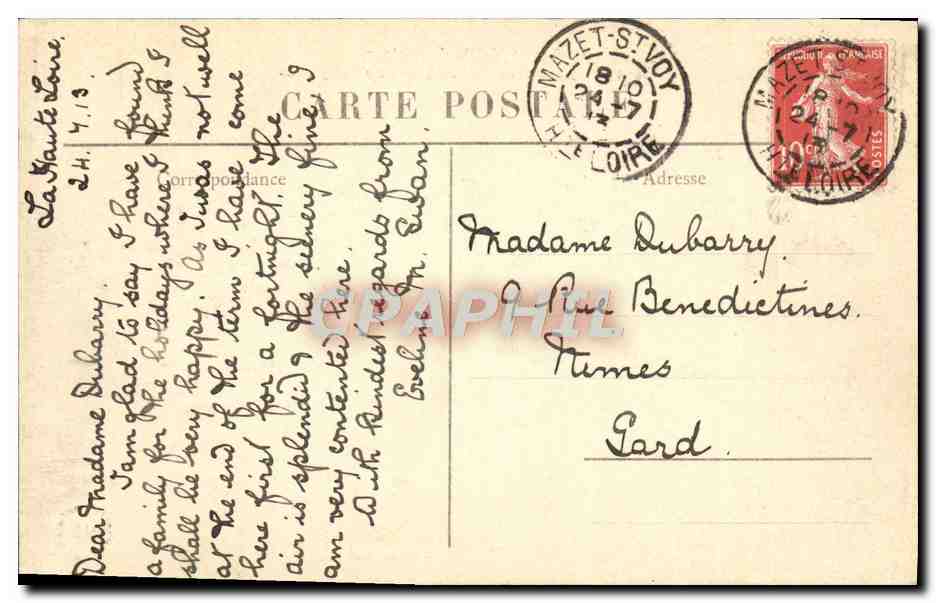 CARTE POSTALE
Correspondance
Adresse
La Haute Loire.
24.7.13
Dear Madame Dubarry.
I am glad to say I have found
a family for the holidays where I think I
shall be very happy. As I was not well
at the end of the term I have come
here first for a fortnight. The
air is splendid & the scenery fine I
am very contented here.
With kindest regards from
Eveline M.
Madame Dubarry.
9 Rue Benedictines.
Nimes
Gard.
MAZET-ST VOY
18 10
24-7
13
HTE LOIRE
REPUBLIQUE FRANÇAISE
10c
POSTES
MAZET
24-7
13
HTE LOIRE
CPAPHIL